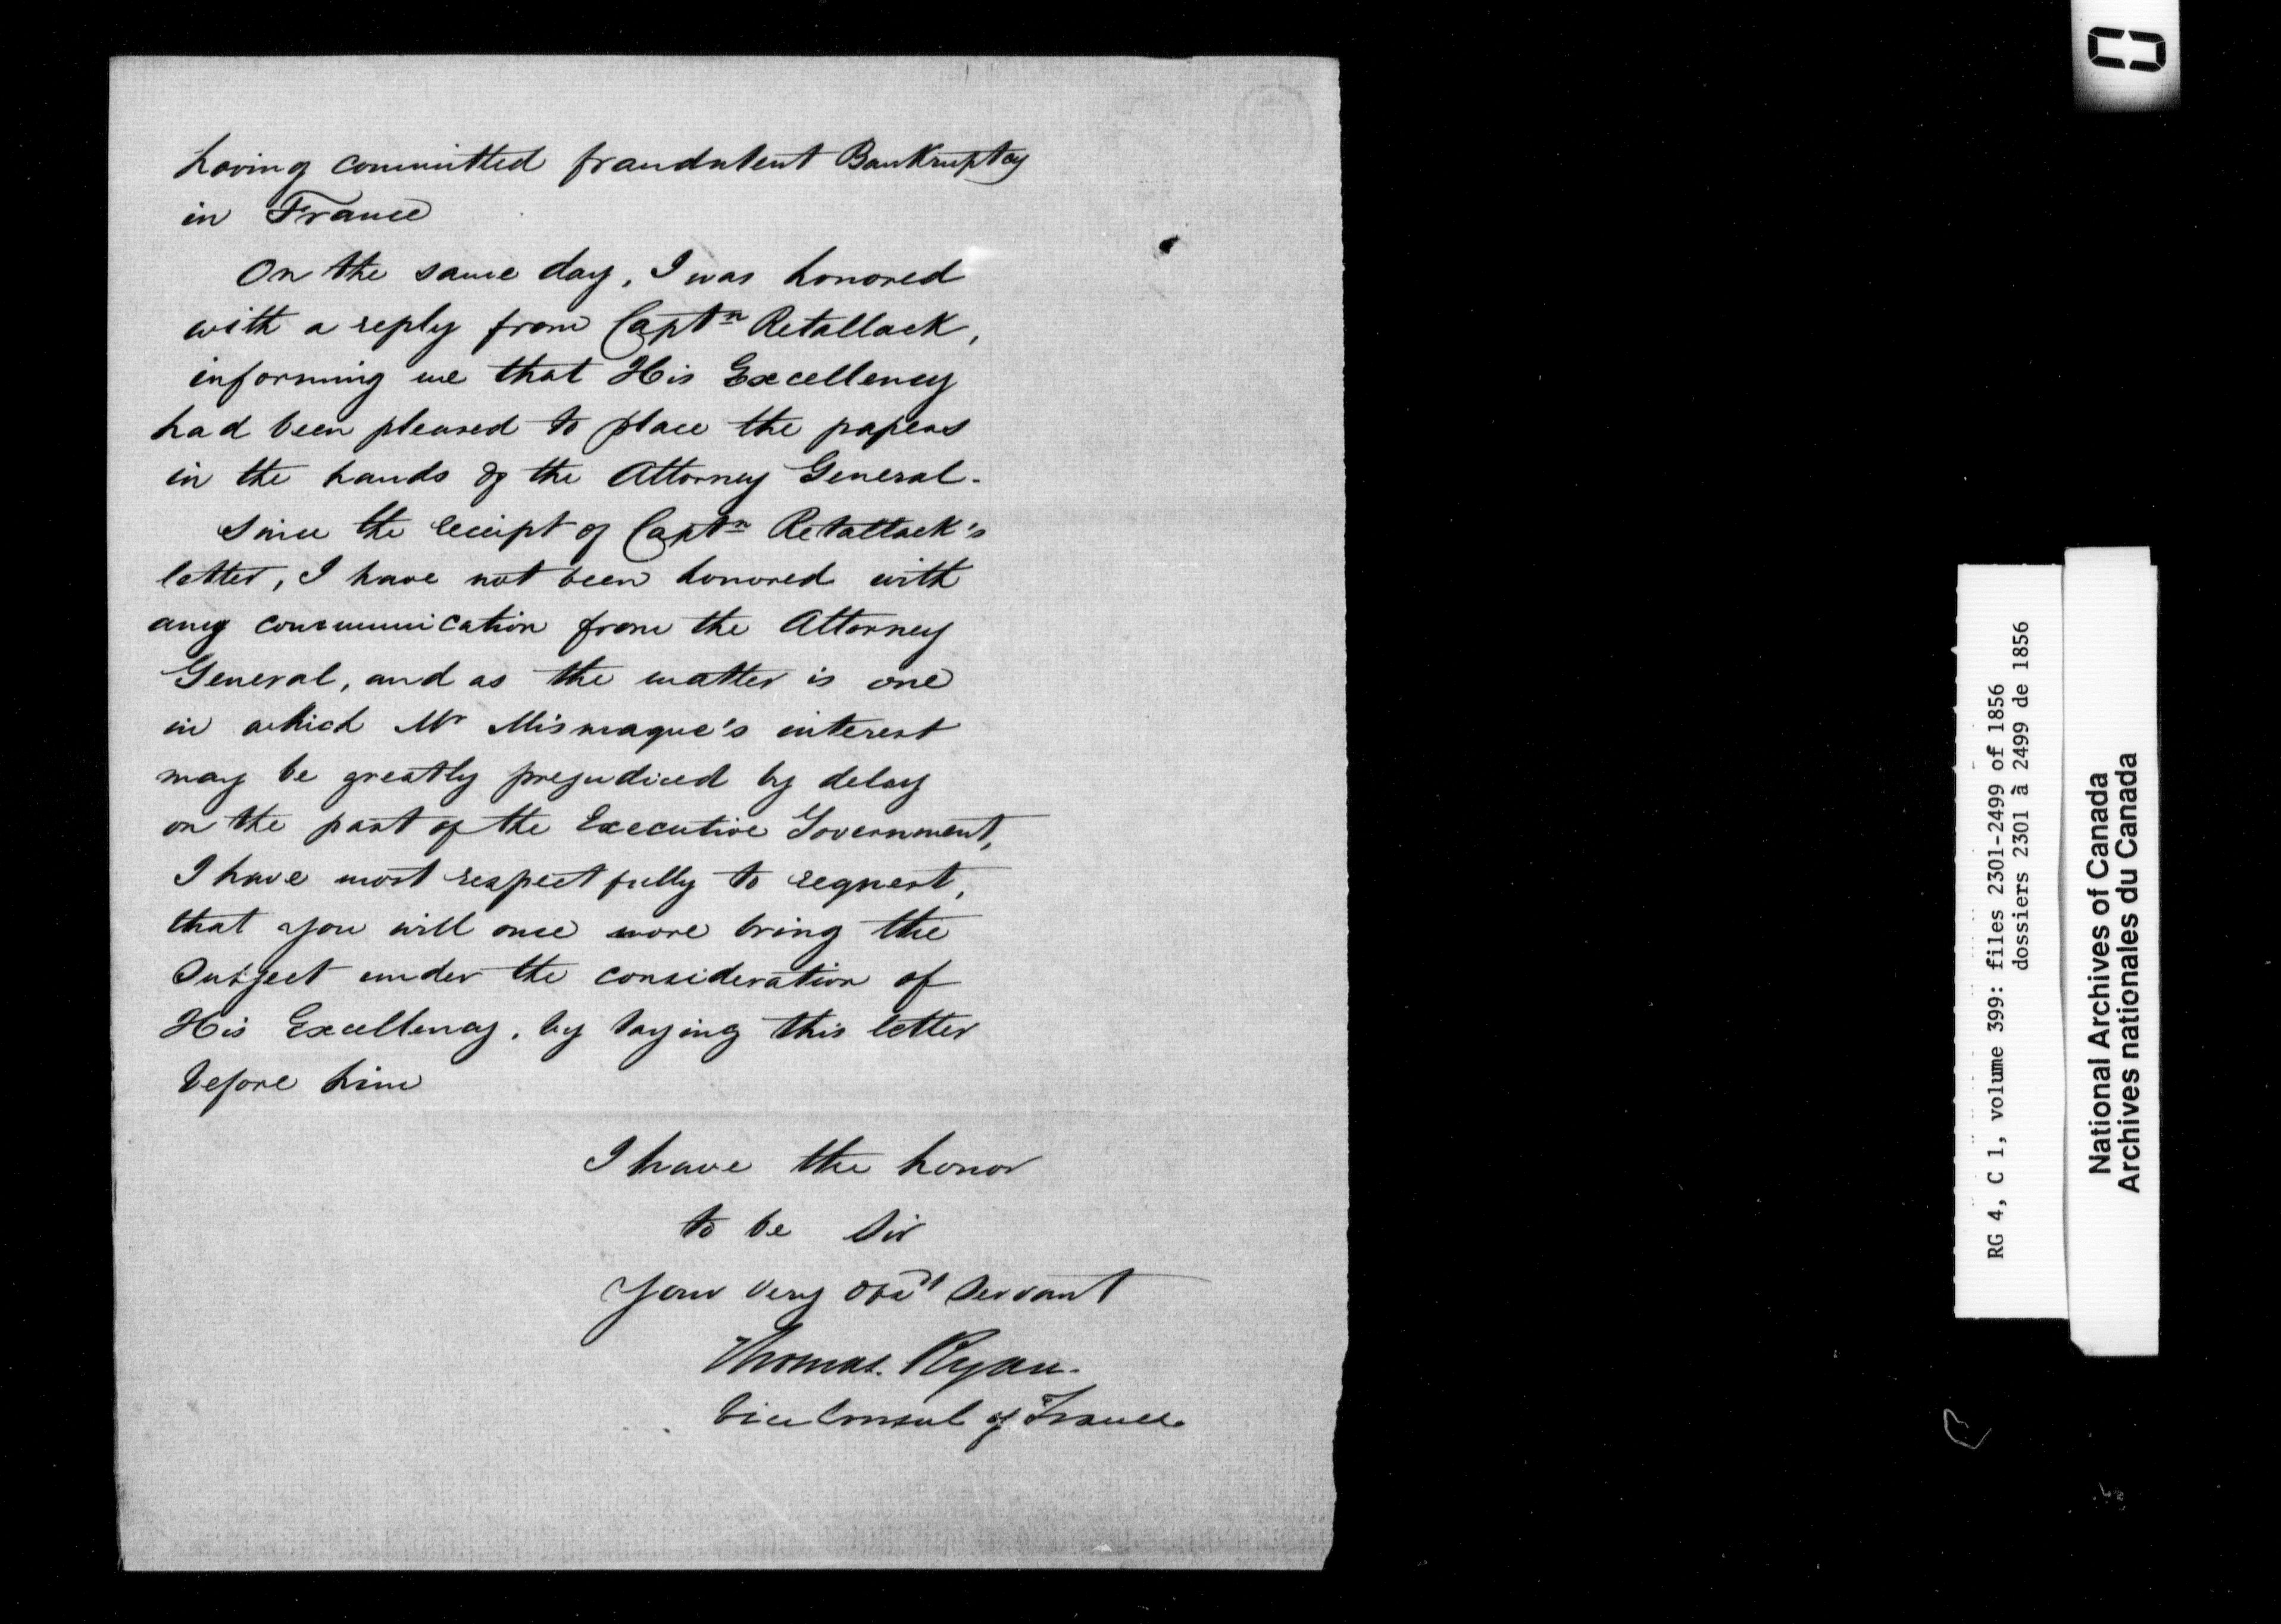 having committed fraudulent Bankruptcy
in France
On the same day, I was honored
with a reply from Captn Retallack,
informing me that His Excellency
had been pleased to place the papers
in the hands of the Attorney General.
Since the receipt of Captn Retallack's
letter, I have not been honored with
any communication from the Attorney
General, and as the matter is one
in which Mr Mismaque's interest
may be greatly prejudiced by delay
on the part of the Executive Government,
I have most respectfully to request,
that you will once more bring the
Subject under the consideration of
His Excellency, by laying this letter
before him
I have the honor
to be Sir
Your very obdt Servant
Thomas. Ryan.
Vice Consul of France
RG 4, C 1, volume 399: files 2301-2499 of 1856
dossiers 2301 à 2499 de 1856
National Archives of Canada
Archives nationales du Canada